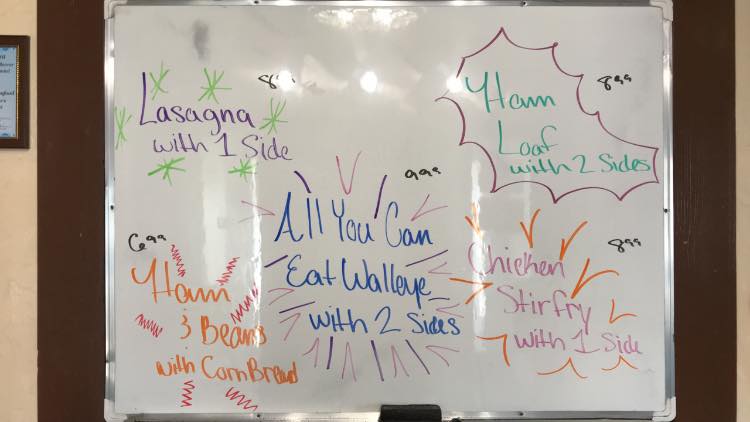 Lasagna
with 1 Side
899
Ham
Loaf
with 2 Sides
999
All You Can
Eat Walleye
with 2 Sides
699
Ham
& Beans
with CornBread
899
Chicken
Stirfry
with 1 Side